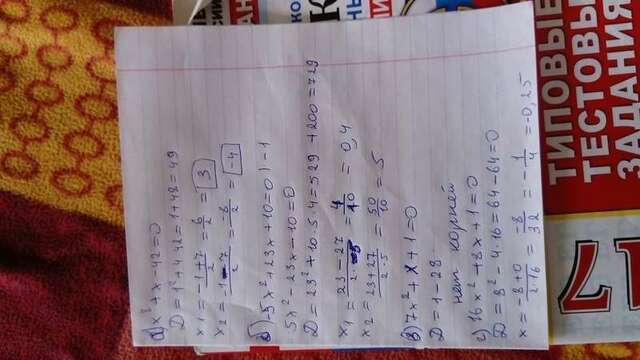 а) x²+x-42=0
D=1²+4·42=1+48=49
x₁ = -1+7/2 = 6/2 = 3
x₂ = 1-7/2 = -8/2 = -4
б) -5x²+23x+10=0 | -1
5x²-23x-10=0
D=23²+10·5·4=529+200=729
x₁ = 23-27/2·5 = 4/10 = 0,4
x₂ = 23+27/2·5 = 50/10 = 5
в) 7x²+x+1=0
D=1-28
нет корней
г) 16x²+8x+1=0
D=8²-4·16=64-64=0
x = -8+0/2·16 = -8/32 = -1/4 = -0,25
ТИПОВЫЕ
ТЕСТОВЫ
ЗАДАНИЯ
17